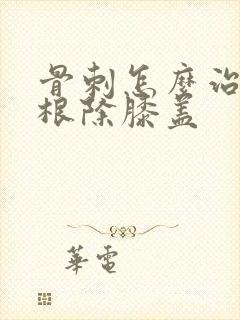 骨刺怎麼治
根除膝盖
華電